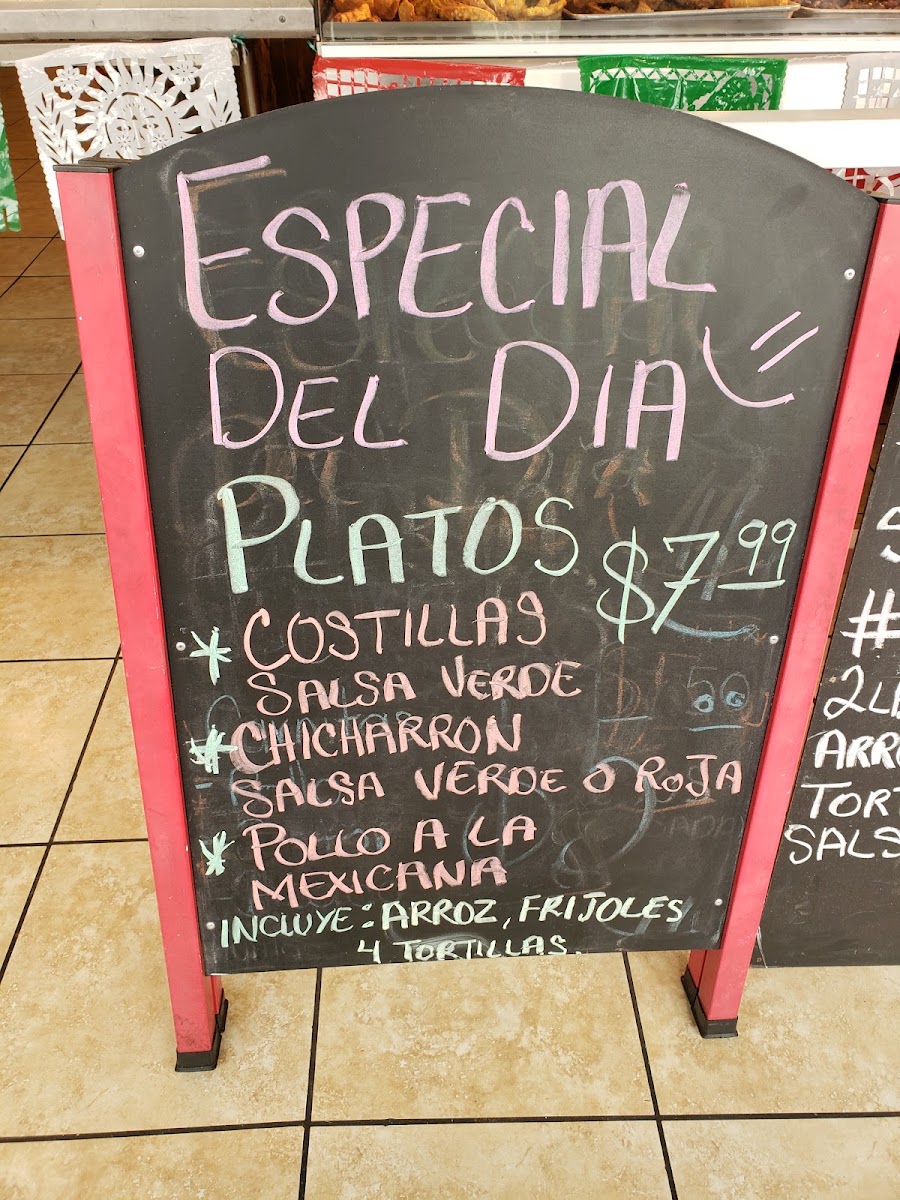 ESPECIAL
DEL DIA
PLATOS $7.99
* COSTILLAS
SALSA VERDE
* CHICHARRON
SALSA VERDE O ROJA
* POLLO A LA
MEXICANA
INCLUYE: ARROZ, FRIJOLES
4 TORTILLAS.
#